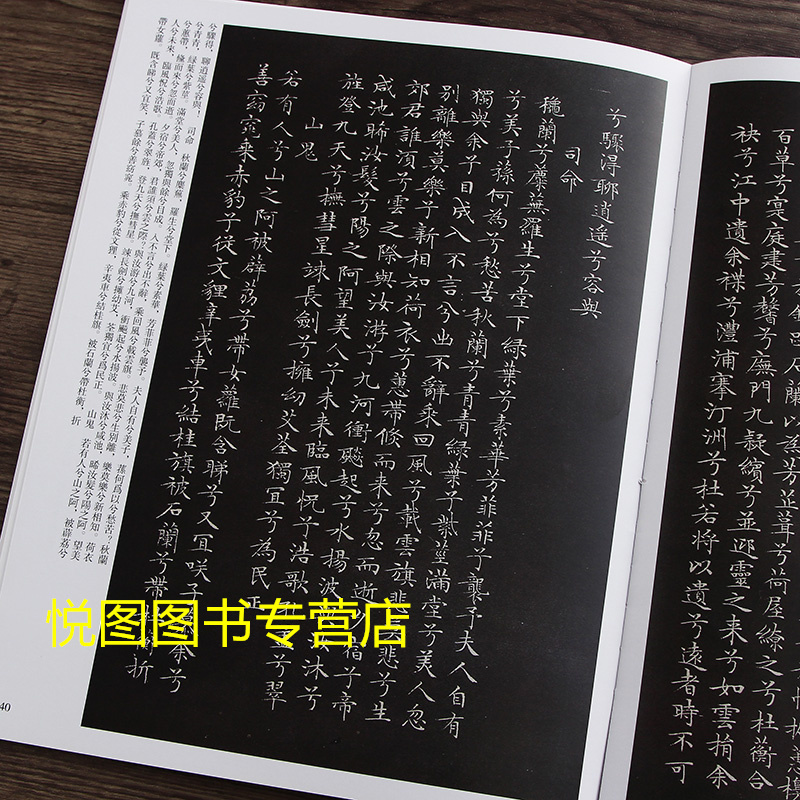 石蘭以為芳芷葺兮荷屋繚之兮杜衡合
百草兮寔庭建芳馨兮廡門九疑繽兮並迎靈之来兮如雲捐余
袂兮江中遺余褋兮澧浦搴汀洲兮杜若将以遺兮遠者時不可
兮驟得聊逍遥兮容與
司命
穐蘭兮麋蕪羅生兮堂下緑葉兮素華芳菲菲兮襲予夫人自有
兮美子孫何為兮愁苦秋蘭兮青青緑葉兮紫莖滿堂兮美人忽
獨與余兮目成入不言兮出不辭乘回風兮載雲旗悲莫悲兮生
別離樂莫樂兮新相知荷衣兮蕙帶倏而来兮忽而逝夕宿兮帝
郊君誰須兮雲之際與汝游兮九河衝飈起兮水揚波與汝沐兮
咸池晞汝髮兮陽之阿望美人兮未来臨風怳兮浩歌孔蓋兮翠
旌登九天兮撫彗星竦長劍兮擁幼艾荃獨宜兮為民正
山鬼
若有人兮山之阿被薜荔兮帶女蘿既含睇兮又宜咲子慕余兮
善窈窕乘赤豹兮從文狸辛夷車兮結桂旗被石蘭兮帶杜衡折
兮驟得，聊逍遥兮容與！ 司命 秋蘭兮麋蕪，羅生兮堂下。緑葉兮素華，芳菲菲兮襲予。夫人自有兮美子，蓀何爲以兮愁苦？秋蘭
兮青青，緑葉兮紫莖。滿堂兮美人，忽獨與餘兮目成。入不言兮出不辭，乘回風兮載雲旗。悲莫悲兮生別離，樂莫樂兮新相知。荷衣
兮蕙帶，倏而來兮忽而逝。夕宿兮帝郊，君誰須兮雲之際？與汝游兮九河，衝飈起兮水揚波。與汝沐兮咸池，晞汝髮兮陽之阿。望美
人兮未來，臨風怳兮浩歌。孔蓋兮翠旌，登九天兮撫彗星。竦長劍兮擁幼艾，荃獨宜兮爲民正。 山鬼 若有人兮山之阿，被薜荔兮
帶女蘿。既含睇兮又宜笑，子慕餘兮善窈窕。乘赤豹兮從文狸，辛夷車兮結桂旗。被石蘭兮帶杜衡，折
40
悦图图书专营店